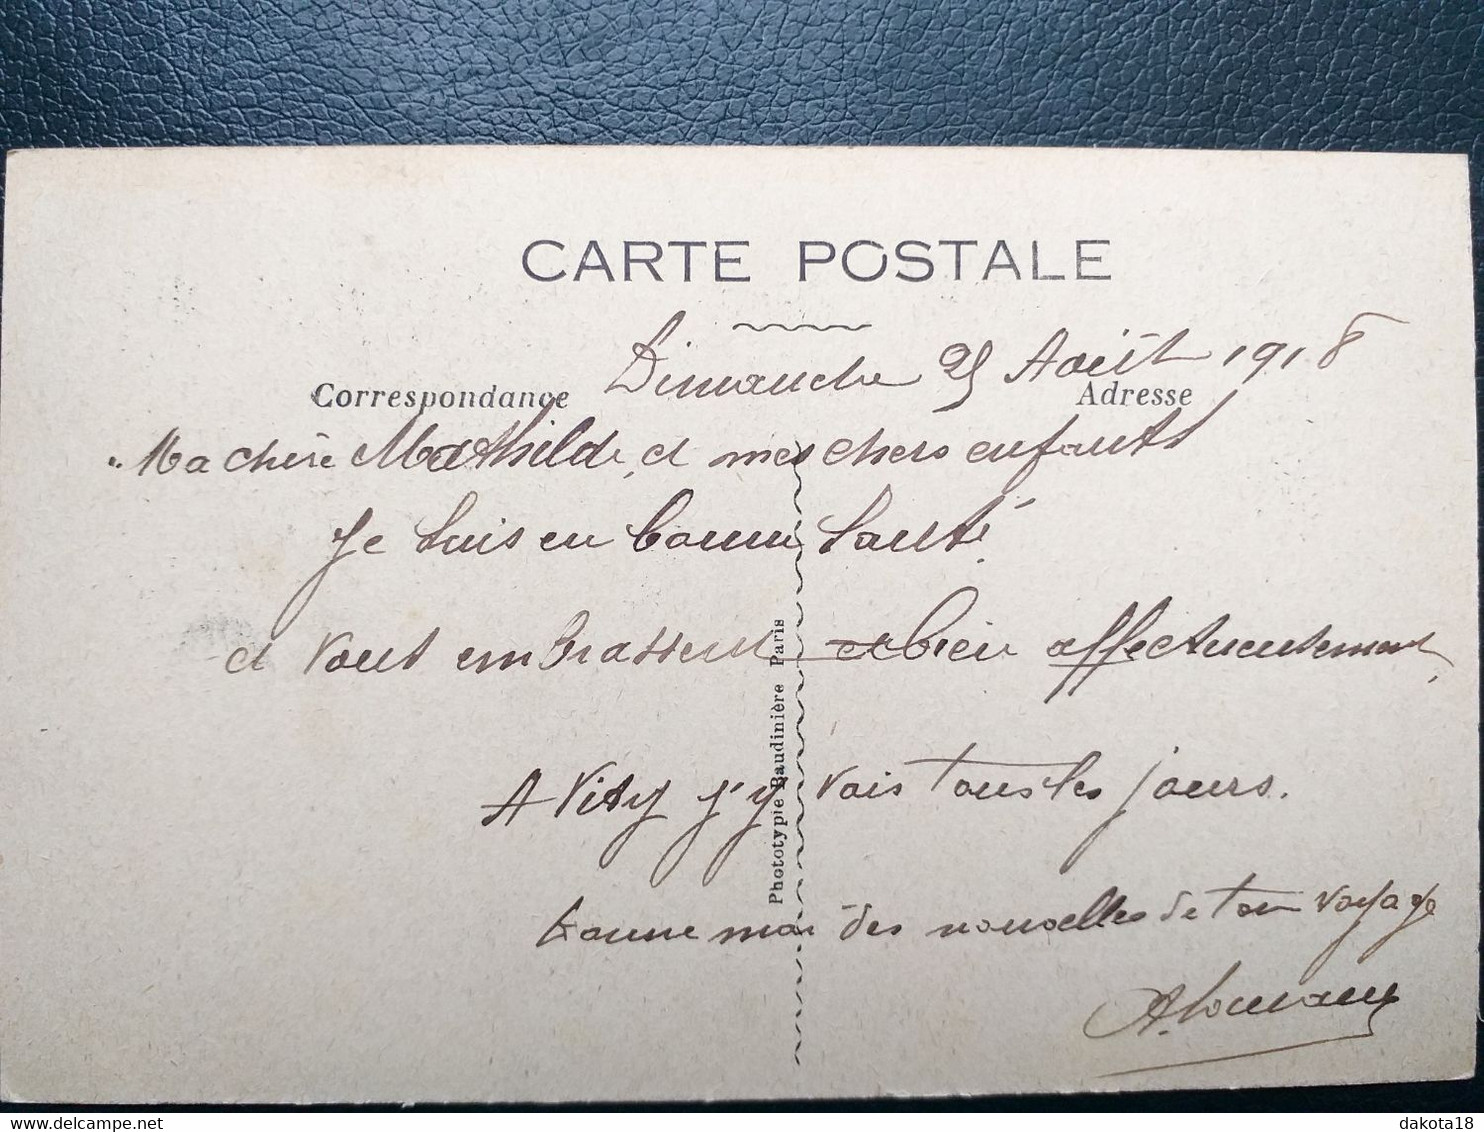 CARTE POSTALE
Dimanche 25 Août 1918
Correspondance
Adresse
Ma chère Mathilde et mes chers enfants
Je suis en bonne santé
et vous embrassent bien affectueusement
A Vitry j'y vais tous les jours.
donne moi des nouvelles de ton voyage
Phototypie Baudinière Paris
delcampe.net
dakota18